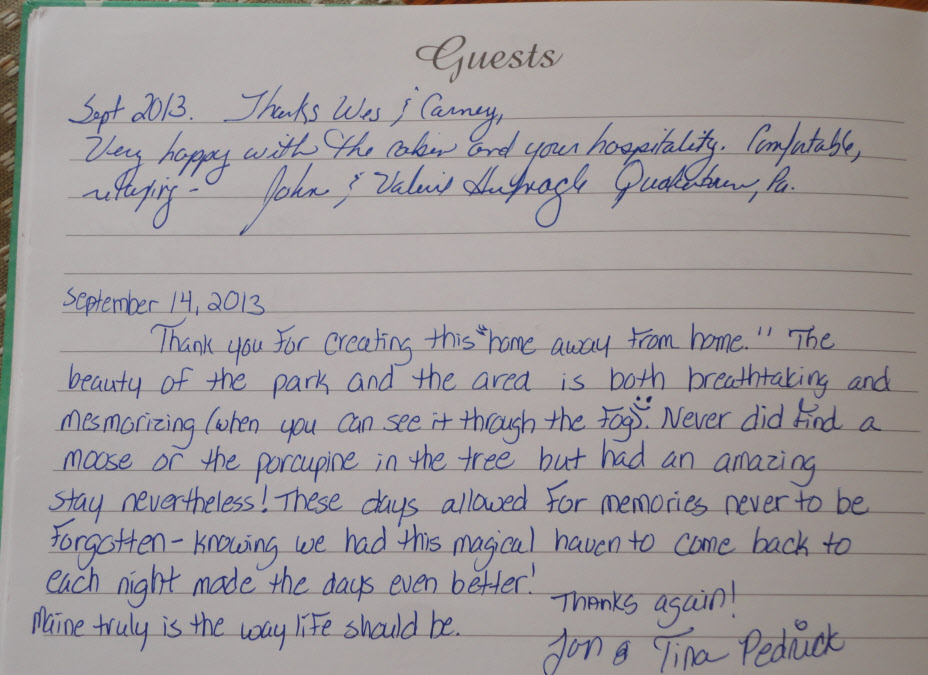 Guests
Sept 2013. Thanks Wes & Carney,
Very happy with the cabin and your hospitality. Comfortable,
relaxing - John & Valerie Quakertown, Pa.
September 14, 2013
Thank you for creating this "home away from home." The
beauty of the park and the area is both breathtaking and
mesmorizing (when you can see it through the fog). Never did find a
moose or the porcupine in the tree but had an amazing
stay nevertheless! These days allowed for memories never to be
forgotten - knowing we had this magical haven to come back to
each night made the days even better!
Maine truly is the way life should be.
Thanks again!
Jon & Tina Pedrick